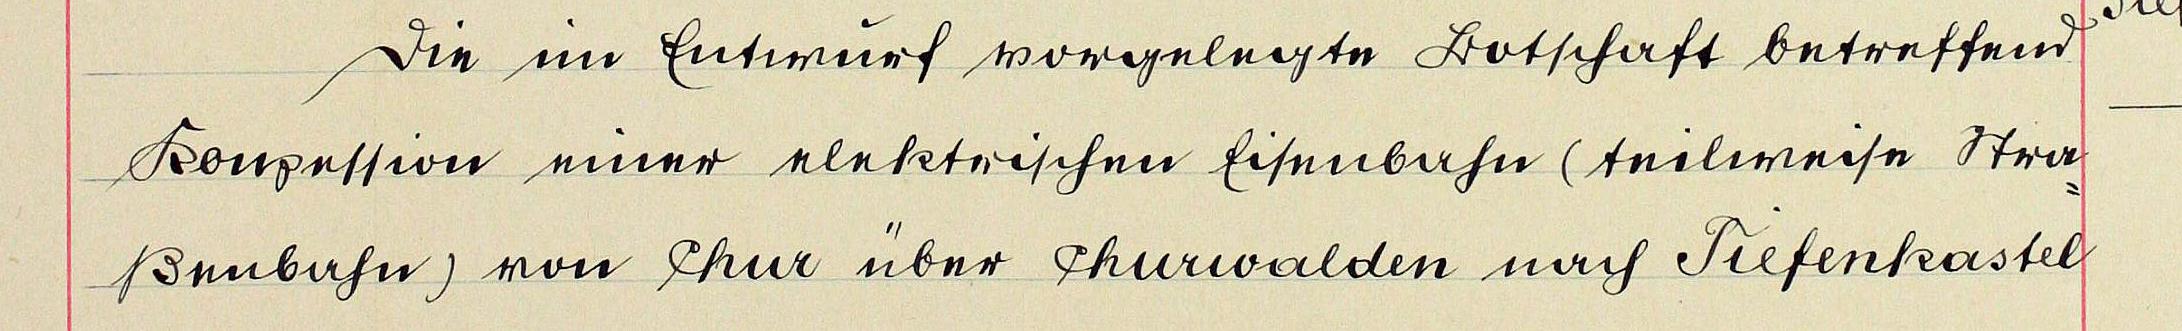 Die im Entwurf vorgelegte Botschaft betreffend
Konzession einer elektrischen Eisenbahn (teilweise Stra=
ßenbahn) von Chur über Churwalden nach Tiefenkastel